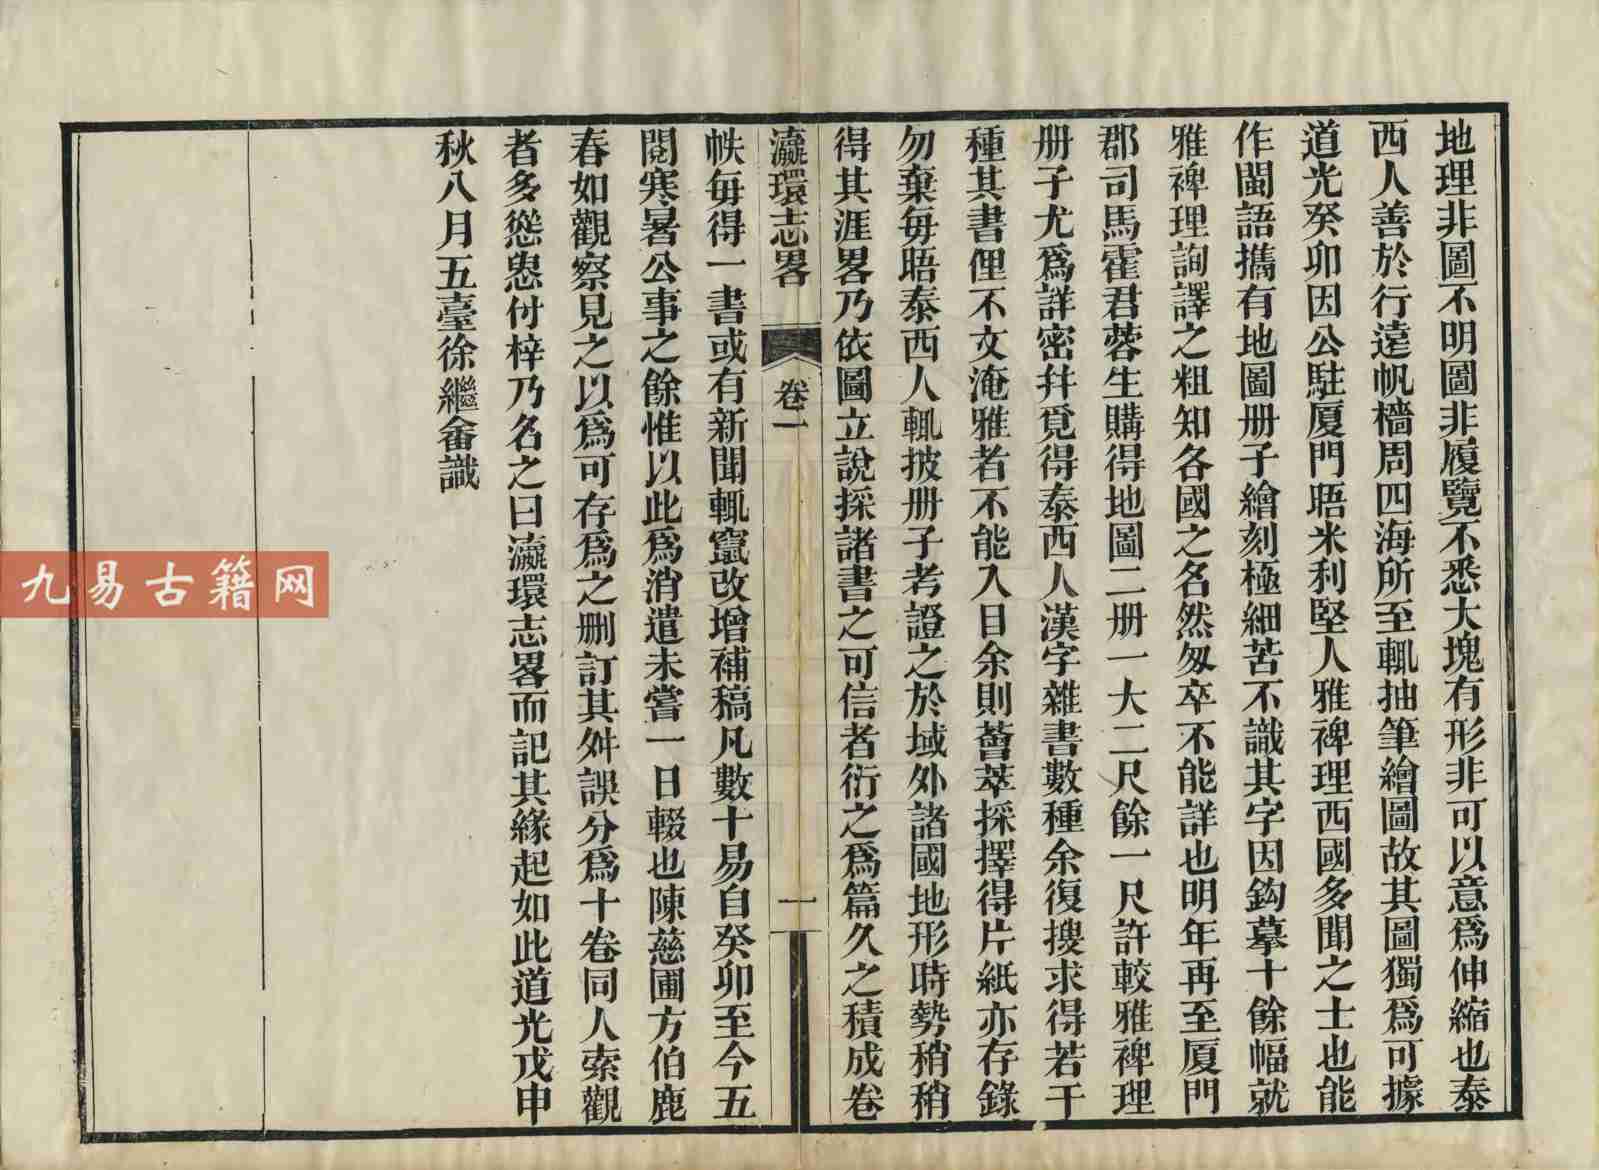 地理非圖不明圖非履覽不悉大塊有形非可以意爲伸縮也泰
西人善於行遠帆檣周四海所至輒抽筆繪圖故其圖獨爲可據
道光癸卯因公駐厦門晤米利堅人雅裨理西國多聞之士也能
作閩語攜有地圖册子繪刻極細苦不識其字因鈎摹十餘幅就
雅裨理詢譯之粗知各國之名然匆卒不能詳也明年再至厦門
郡司馬霍君蓉生購得地圖二册一大二尺餘一尺許較雅裨理
册子尤爲詳密幷覓得泰西人漢字雜書數種余復搜求得若干
種其書俚不文淹雅者不能入目余則薈萃採擇得片紙亦存錄
勿棄毎晤泰西人輒披册子考證之於域外諸國地形時勢稍稍
得其涯畧乃依圖立說採諸書之可信者衍之爲篇久之積成卷
瀛環志畧 卷一 一
帙毎得一書或有新聞輒竄改增補稿凡數十易自癸卯至今五
閱寒暑公事之餘惟以此爲消遣未嘗一日輟也陳慈圃方伯鹿
春如觀察見之以爲可存爲之删訂其舛誤分爲十卷同人索觀
者多慫恿付梓乃名之曰瀛環志畧而記其緣起如此道光戊申
秋八月五臺徐繼畬識
九易古籍网